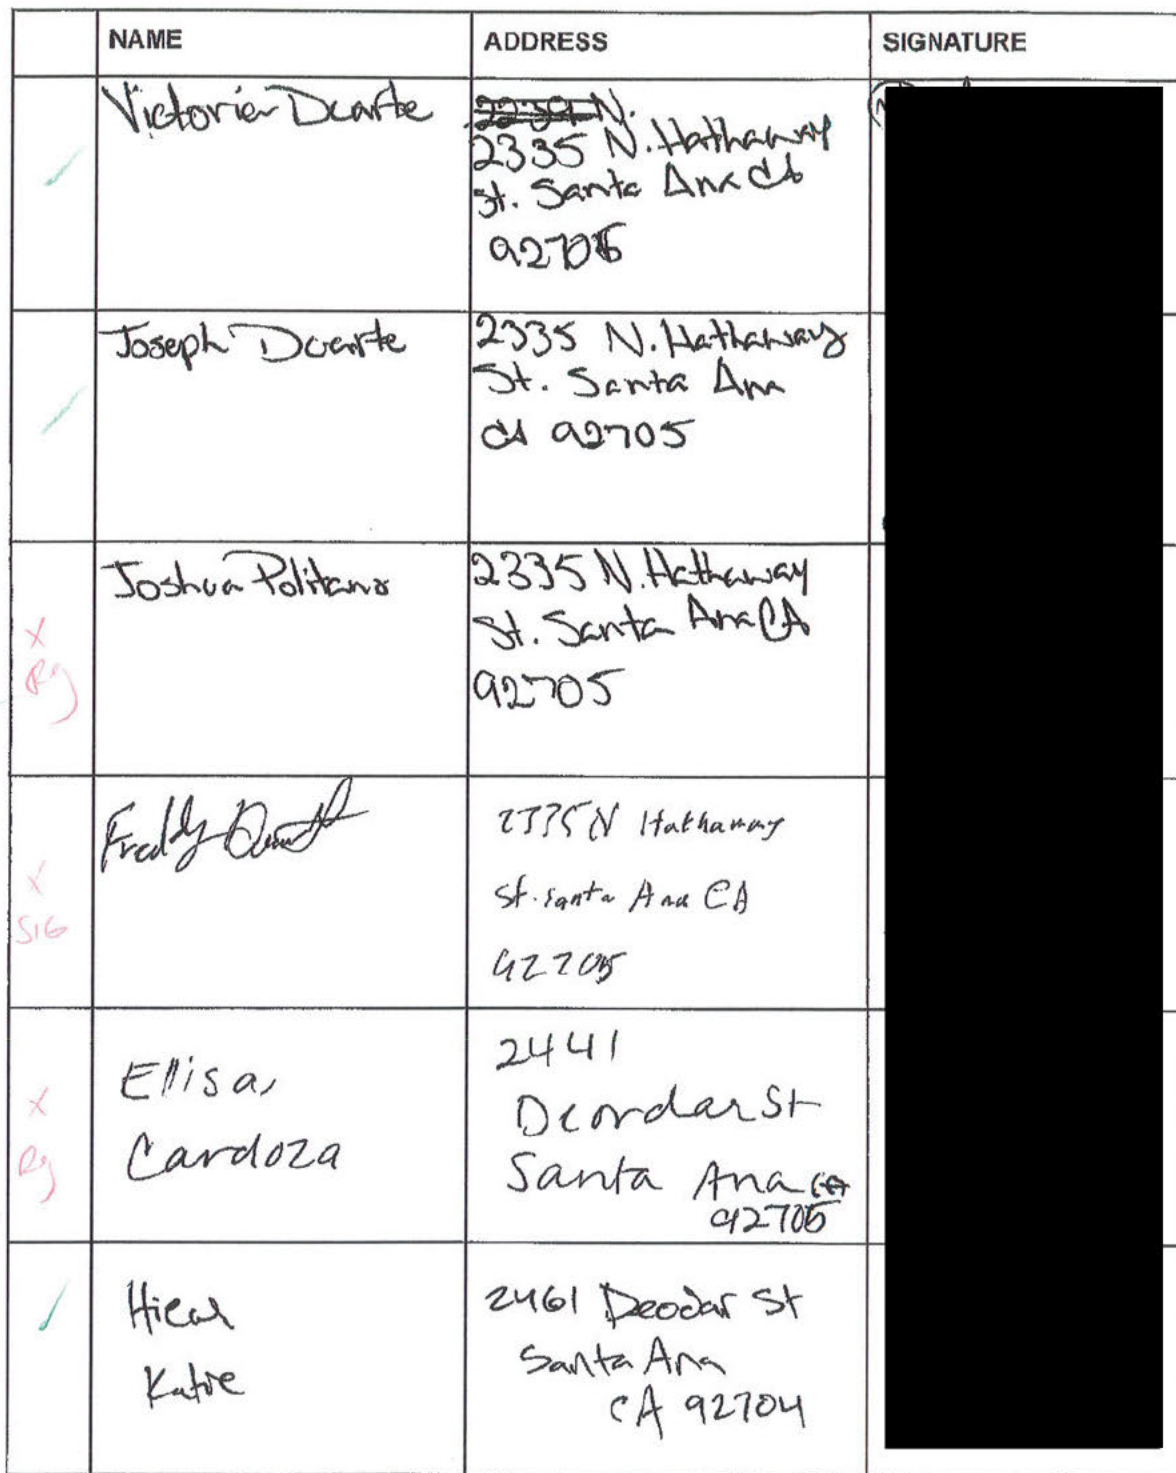 NAME ADDRESS SIGNATURE
Victoria Duarte
N.
2335 N. Hathaway
St. Santa Ana CA
92705
Joseph Duarte
2335 N. Hathaway
St. Santa Ana
CA 92705
Joshua Politano
2335 N. Hathaway
St. Santa Ana CA
92705
X
Rg
Freddy
2335 N Hathaway
St. Santa Ana CA
92705
X
SIG
Ellisa,
Cardoza
2441
Deordar St
Santa Ana CA
92705
X
Rg
Katie
2461 Deodar St
Santa Ana
CA 92704